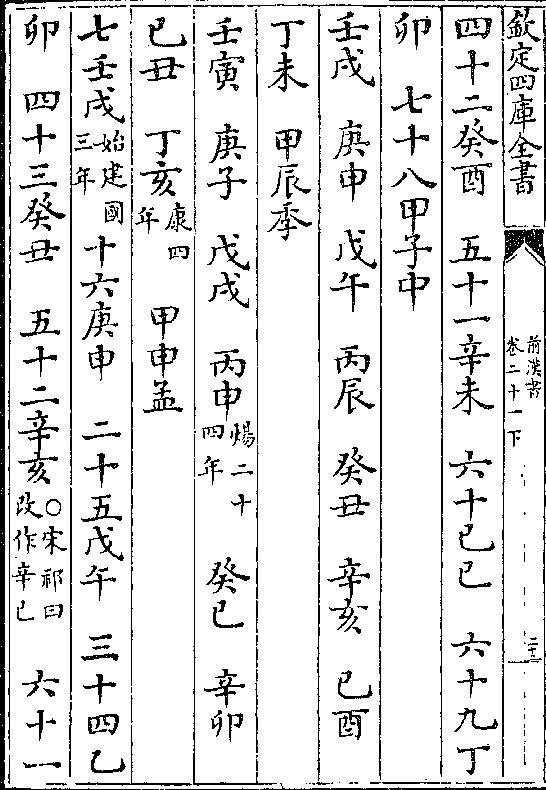 欽定四庫全書
前漢書
卷二十一下
二十三
四十二癸酉 五十一辛未 六十己巳 六十九丁
卯 七十八甲子中
壬戌 庚申 戊午 丙辰 癸丑 辛亥 己酉
丁未 甲辰季
壬寅 庚子 戊戌 丙申煬二十四年 癸巳 辛卯
己丑 丁亥康四年 甲申孟
七壬戌始建國三年 十六庚申 二十五戊午 三十四乙
卯 四十三癸丑 五十二辛亥○宋祁曰改作辛巳 六十一